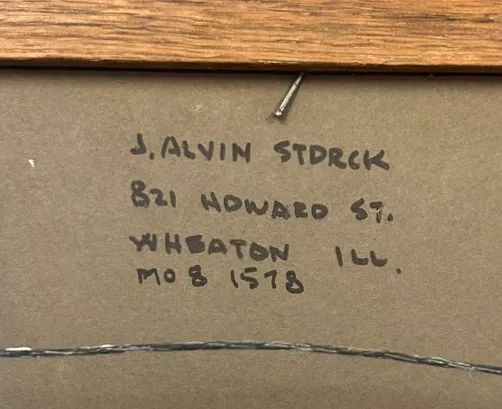 J. ALVIN STORCK
821 HOWARD ST.
WHEATON ILL.
MO 8 1578